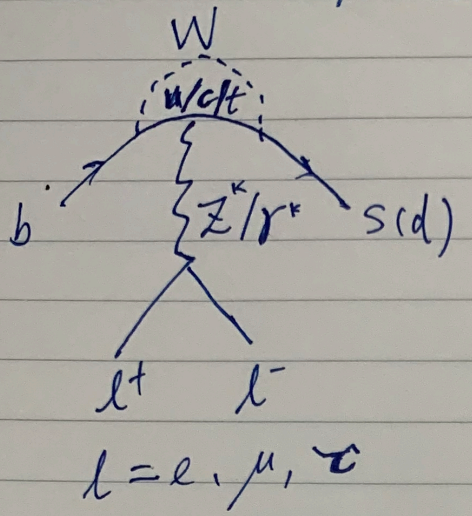 W
u/c/t
b
Z*/γ*
s(d)
l+
l-
l = e, μ, τ